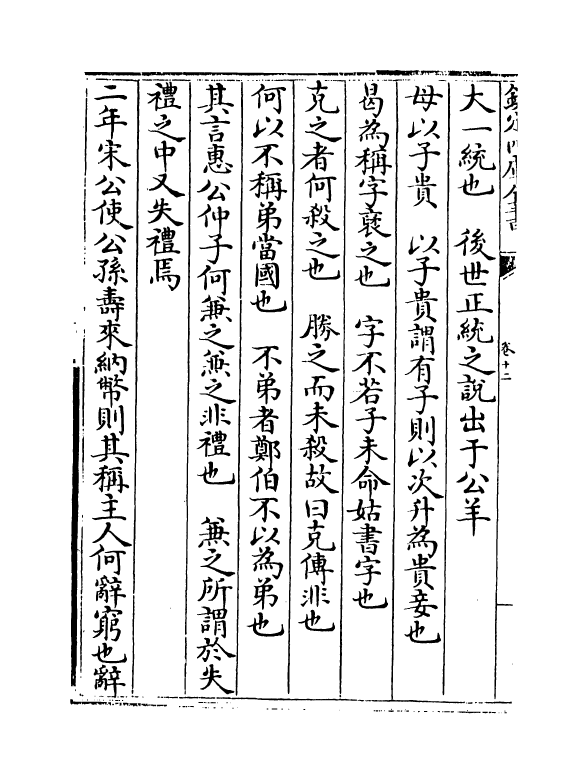 欽定四庫全書
卷十二
大一統也　後世正統之說出于公羊
母以子貴　以子貴謂有子則以次升為貴妾也
曷為稱字襃之也　字不若子未命姑書字也
克之者何殺之也　勝之而未殺故曰克傳非也
何以不稱弟當國也　不弟者鄭伯不以為弟也
其言惠公仲子何兼之兼之非禮也　兼之所謂於失
禮之中又失禮焉
二年宋公使公孫壽來納幣則其稱主人何辭窮也辭